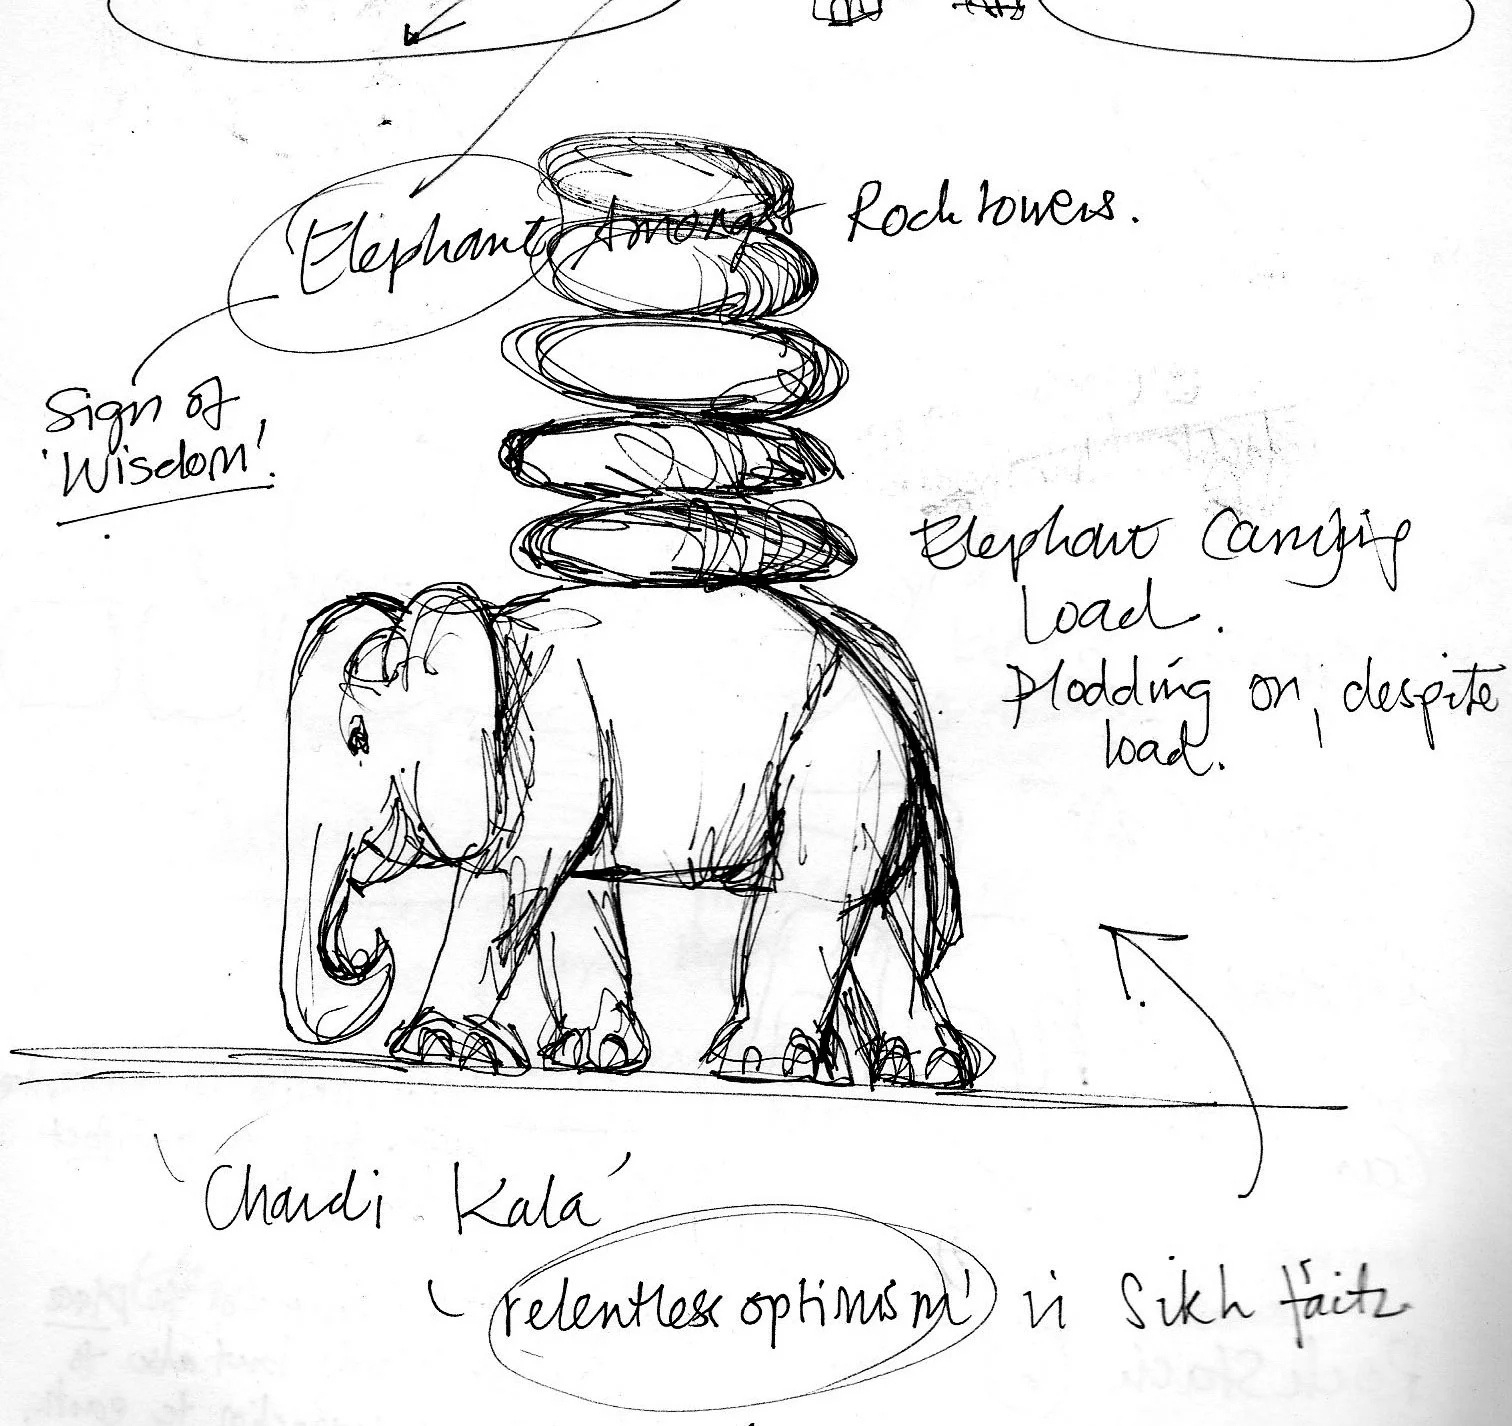 Elephant Amongst Rock towers.
Sign of
'Wisdom'.
Elephant Carrying
Load.
Plodding on, despite
load.
'Chardi Kala'
'relentless optimism' in Sikh faith